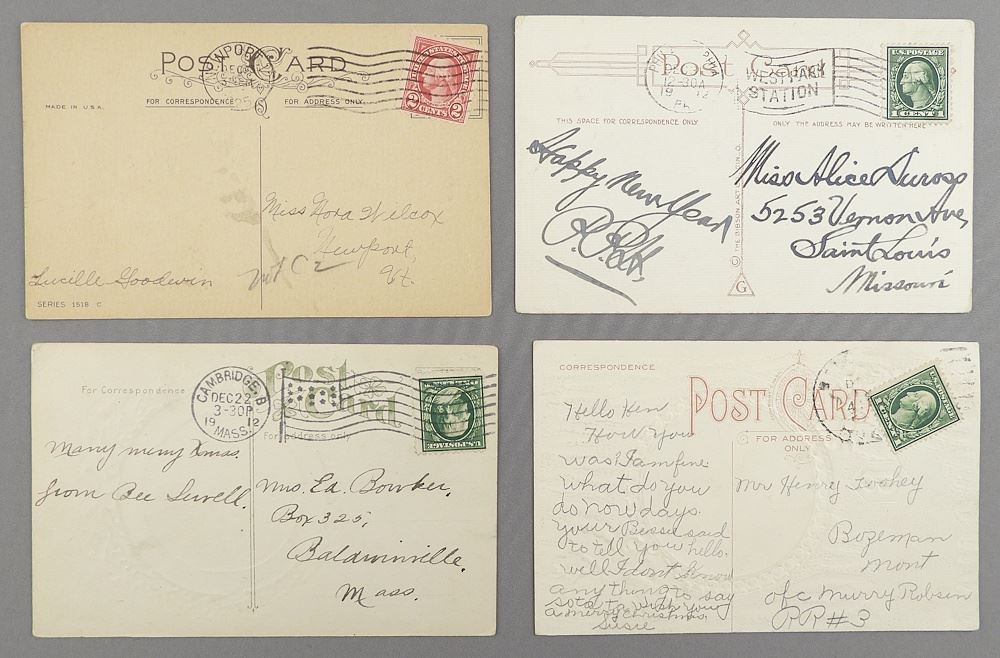 POST CARD
NEWPORT, VT.
MADE IN U.S.A.
FOR CORRESPONDENCE
FOR ADDRESS ONLY
2 CENTS 2
Miss Nora Wilcox
Newport,
Vt.
Lucille Goodwin
SERIES 1518 C
Post Card
WEST PARK
STATION
U.S. POSTAGE
1 CENT 1
THIS SPACE FOR CORRESPONDENCE ONLY
ONLY THE ADDRESS MAY BE WRITTEN HERE
Happy New Year
Miss Alice Duross
5253 Vernon Ave,
Saint Louis
Missouri
THE GIBSON ART
G
Post
Card
For Correspondence
For address only
CAMBRIDGE, B
DEC 22
3-30P
19 12
MASS.
U.S. POSTAGE
Many merry Xmas.
from Bee Sewell.
Mrs. Ed. Bowker,
Box 325,
Baldwinville,
Mass.
CORRESPONDENCE
POST CARD
FOR ADDRESS
ONLY
Hello Hen
How you
was I am fine
what do you
do now days.
your Bessie said
to tell you hello.
well I dont know
any thing to say
so to wish you
a merry Christmas.
Susie
Mr Henry Toohey
Bozeman
Mont
o/c Murry Robsen
RR#3